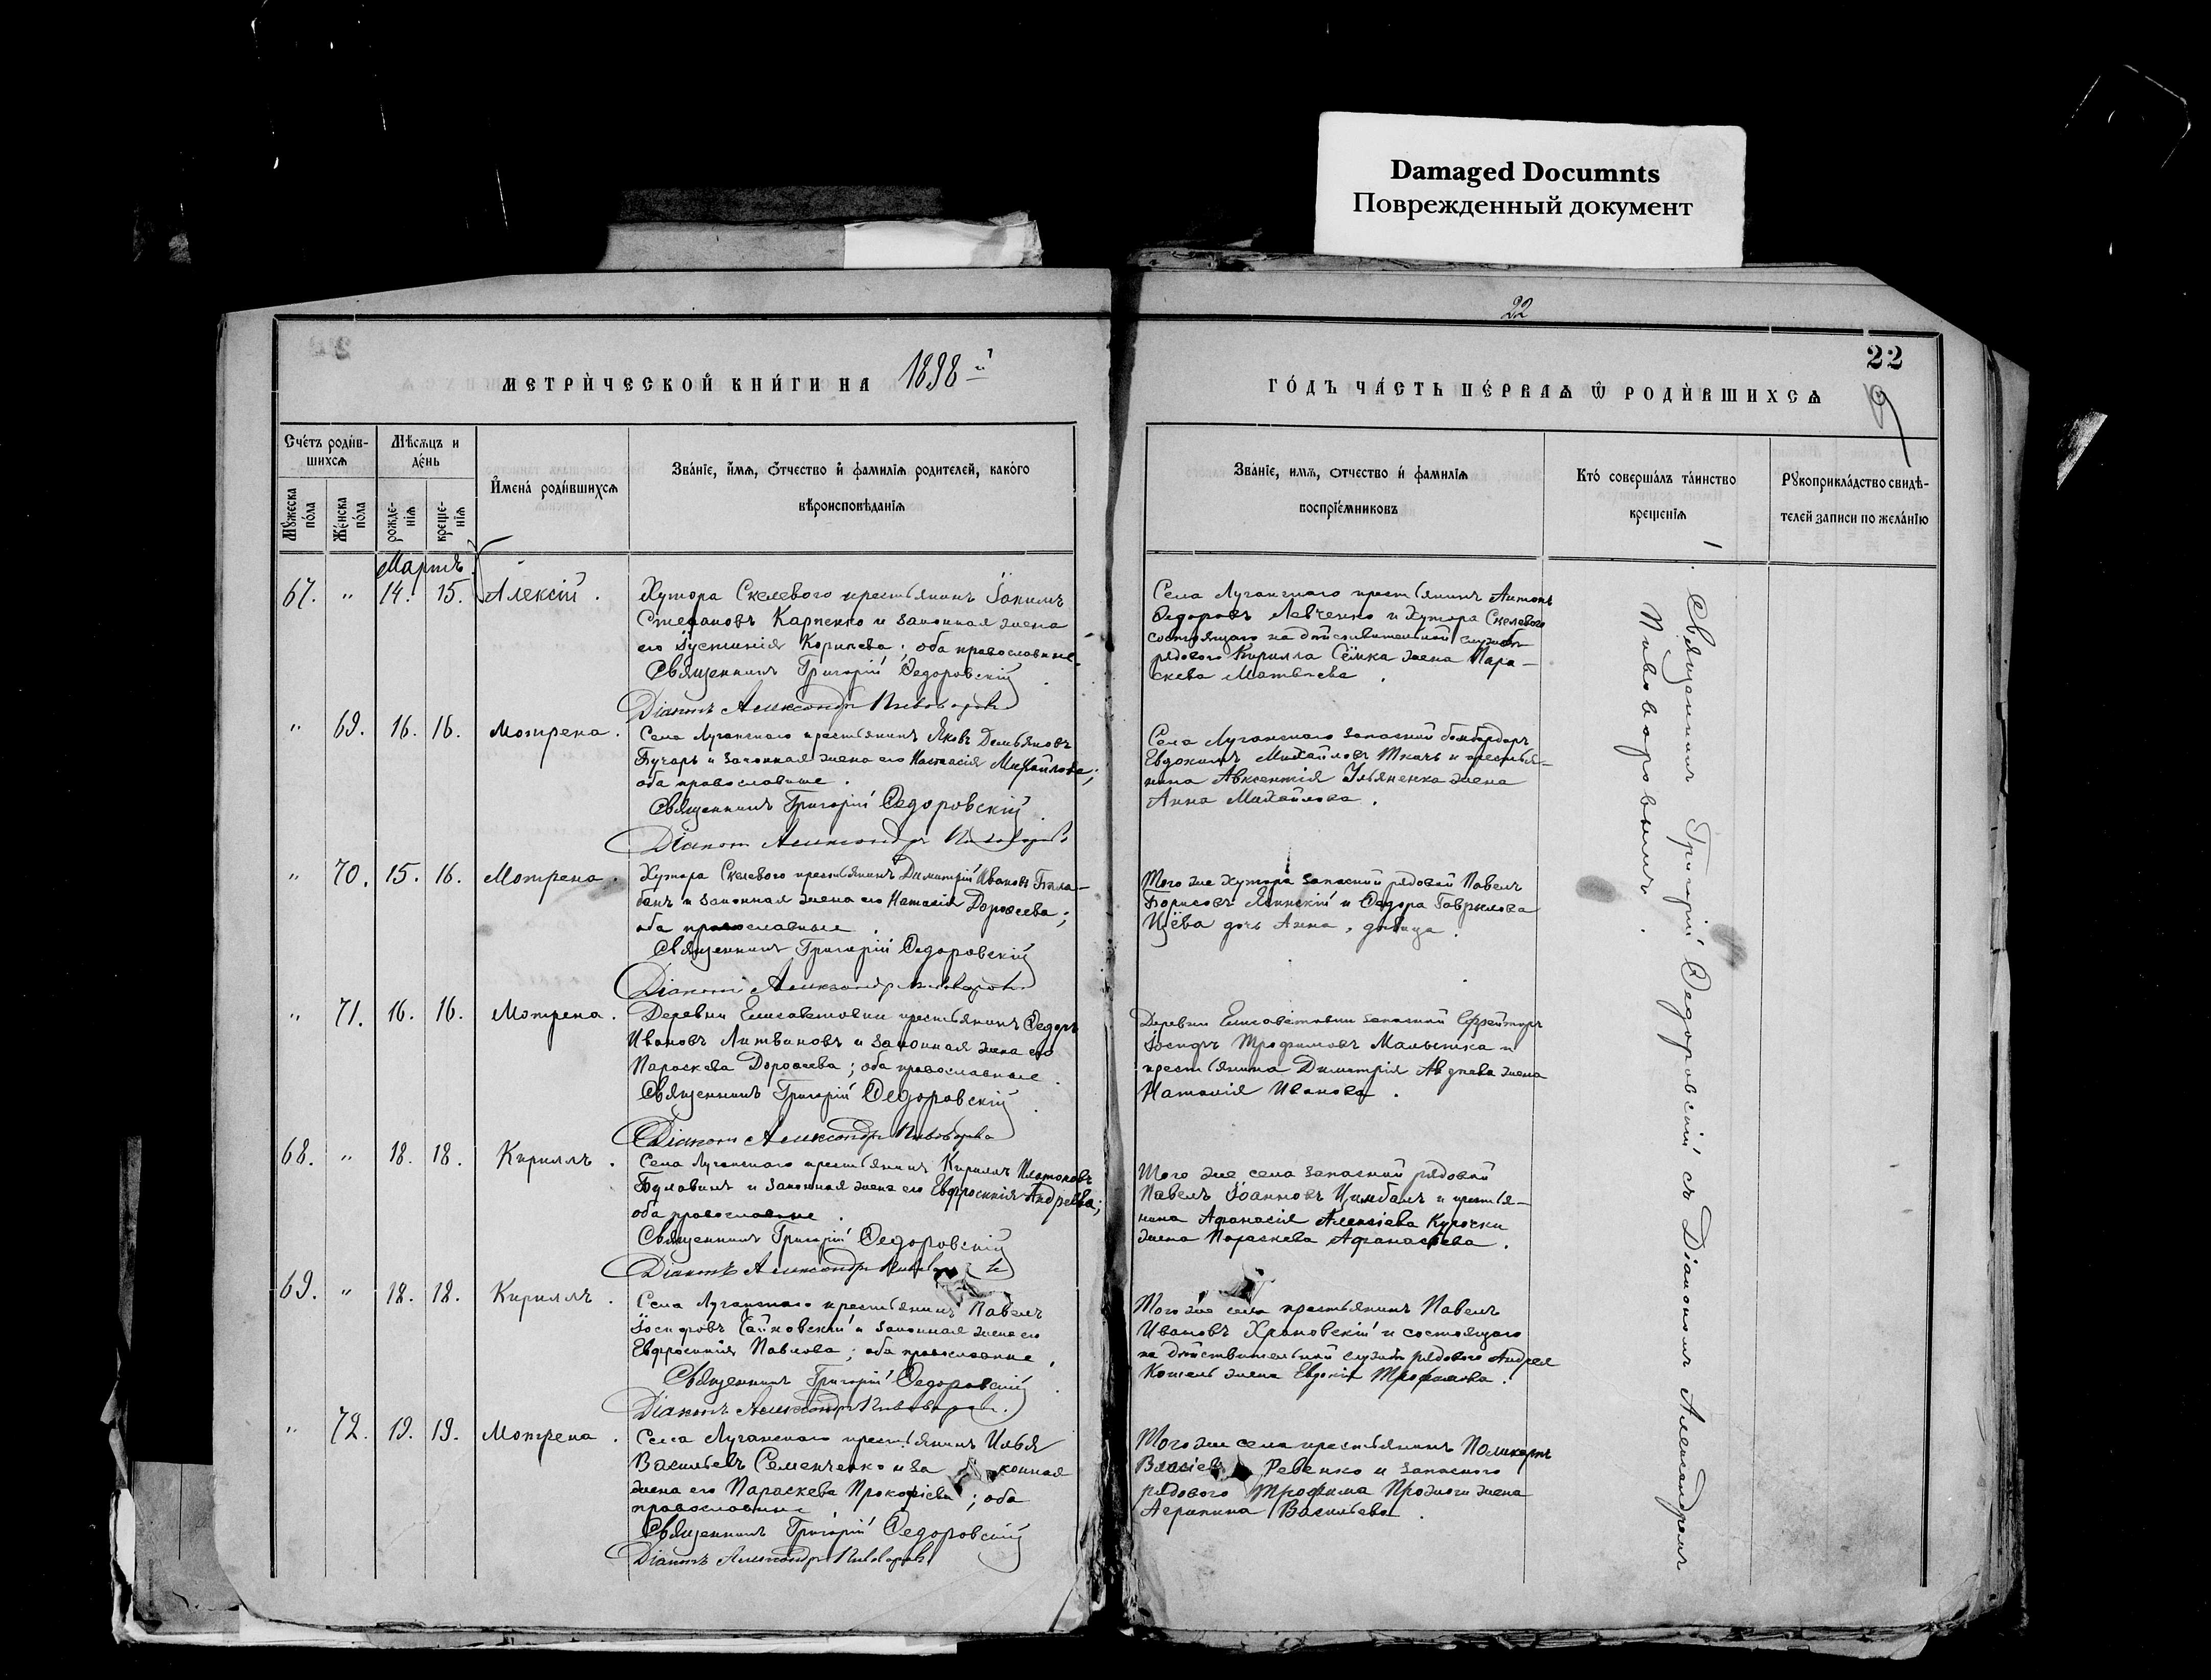 Damaged Documnts
Поврежденный документ
22
22
МЕТРИ́ЧЕСКОЙ КНИ́ГИ НА 1898й
ГО́ДЪ ЧА́СТЬ ПЕ́РВАѦ Ѿ РОДИ́ВШИХСѦ
Сче́тъ роди́в-
шихсѧ
Мѣсѧцъ и
де́нь
Мꙋжеска
по́ла
Же́нска
по́ла
рожде-
нїѧ
креще-
нїѧ
Имена́ роди́вшихсѧ
Зва́нїе, и́мѧ, ѻтчество и фамилїѧ родителей, како́го
вѣроисповѣданїѧ
Зва́нїе, имѧ, отчество и́ фамилїѧ
воспрїе́мниковъ
Кто́ соверша́лъ та́инство
крещенїѧ
Рꙋкоприкла́дство свидѣ-
телей записи по жела́нїю
Мартъ
67. " 14. 15. Алексій.
Хутора Скелевого крестьянинъ Іакимъ
Стефановъ Карпенко и законная жена
его Іустинія Корнѣева; оба православные.
Священникъ Григорій Ѳедоровскій
Діаконъ Александръ Пивоваровъ
Села Луганскаго крестьянинъ Антонъ
Ѳедоровъ Левченко и хутора Скелевого
состоящаго на дѣйствительной службѣ
рядового Кирилла Сёмка жена Пара-
скева Матвѣева.
" 69. 16. 16. Мотрена.
Села Луганскаго крестьянинъ Яковъ Демьяновъ
Бучаръ и законная жена его Настасія Михайлова;
оба православные.
Священникъ Григорій Ѳедоровскій
Діаконъ Александръ Пивоваровъ
Села Луганскаго запасный бомбардиръ
Евдокимъ Михайловъ Ткачъ и крестья-
нина Авксентія Ульяненка жена
Анна Михайлова.
" 70. 15. 16. Мотрена.
Хутора Скелевого крестьянинъ Димитрій Ивановъ Бала-
банъ и законная жена его Наталія Дороѳеева;
оба православные.
Священникъ Григорій Ѳедоровскій
Діаконъ Александръ Пивоваровъ
Того же хутора запасный рядовой Павелъ
Борисовъ и Ѳедора Гаврилова
дочь Анна, дѣвица.
" 71. 16. 16. Мотрена.
Деревни Елисаветовки крестьянинъ Ѳедоръ
Ивановъ Литвиновъ и законная жена его
Параскева Дороѳеева; оба православные.
Священникъ Григорій Ѳедоровскій
Діаконъ Александръ Пивоваровъ
Деревни Елисаветовки запасный Ефрейторъ
Іосифъ Трофимовъ Малышка и
крестьянина Димитрія Авдѣева жена
Наталія Иванова.
68. " 18. 18. Кириллъ.
Села Луганскаго крестьянинъ Кириллъ Платоновъ
Булавинъ и законная жена его Евфросинія Андреева;
оба православные.
Священникъ Григорій Ѳедоровскій
Діаконъ Александръ
Того же села запасный рядовой
Павелъ Іоанновъ Цимбалъ и крестья-
нина Афанасія Алексіева Курочки
жена Параскева Афанасьева.
69. " 18. 18. Кириллъ.
Села Луганскаго крестьянинъ Павелъ
Іосифовъ и законная жена его
Евфросинія Павлова; оба православные.
Священникъ Григорій Ѳедоровскій
Діаконъ Александръ Пивоваровъ.
Того же села крестьянинъ Павелъ
Ивановъ Храновскій и состоящаго
на дѣйствительной службѣ рядового Андрея
Кошель жена Евдокія Трофимова.
" 72. 19. 19. Мотрена.
Села Луганскаго крестьянинъ Илья
Васильевъ Семенченко и законная
жена его Параскева Прокофіева; оба
православные
Священникъ Григорій Ѳедоровскій
Діаконъ Александръ Пивоваровъ
Того же села крестьянинъ Поликарпъ
Власіевъ Ревенко и запасного
рядового Трофима жена
Агрипина Васильева.
Священникъ Григорій Ѳедоровскій съ Діакономъ Александромъ
Пивоваровымъ.